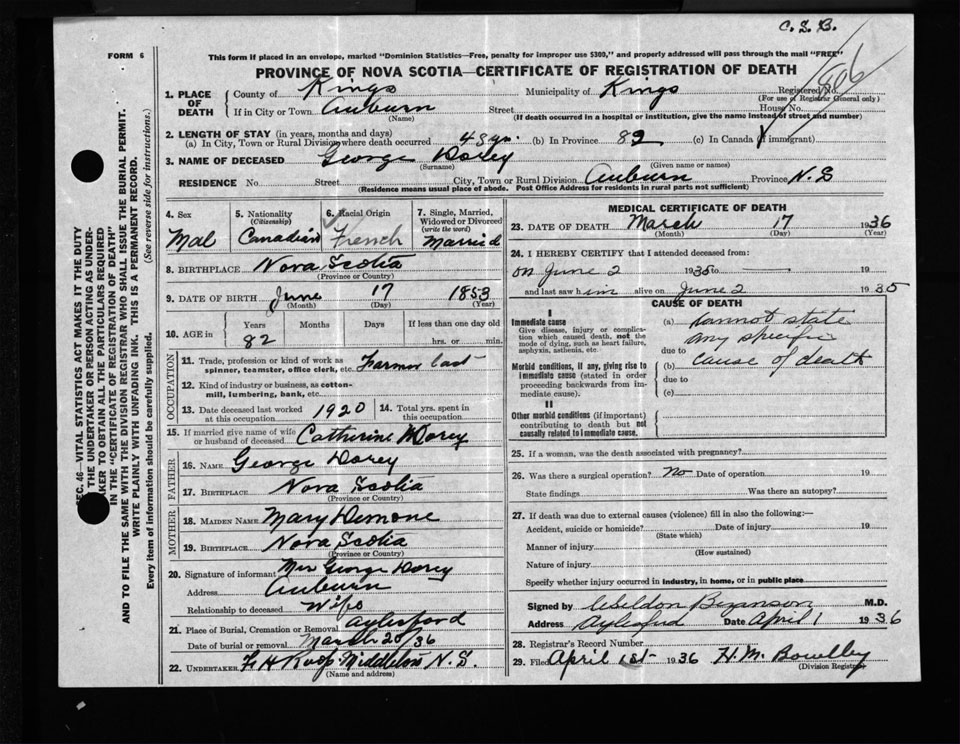 C. S. B.
FORM 6
This form if placed in an envelope, marked "Dominion Statistics—Free, penalty for improper use $300," and properly addressed will pass through the mail "FREE"
PROVINCE OF NOVA SCOTIA—CERTIFICATE OF REGISTRATION OF DEATH
406
1. PLACE OF DEATH County of Kings Municipality of Kings Registered No.
(For use of Registrar General only)
If in City or Town Auburn Street House No.
(Name) (If death occurred in a hospital or institution, give the name instead of street and number)
2. LENGTH OF STAY (in years, months and days)
(a) In City, Town or Rural Division where death occurred 43 yr. (b) In Province 82 (c) In Canada (if immigrant)
3. NAME OF DECEASED George Dorey
(Surname) (Given name or names)
RESIDENCE No. Street City, Town or Rural Division Auburn Province N.S
(Residence means usual place of abode. Post Office Address for residents in rural parts not sufficient)
4. Sex Mal
5. Nationality (Citizenship) Canadian
6. Racial Origin French
7. Single, Married, Widowed or Divorced (write the word) Married
8. BIRTHPLACE Nova Scotia
(Province or Country)
9. DATE OF BIRTH June 17 1853
(Month) (Day) (Year)
10. AGE in Years Months Days If less than one day old
82 hrs. or min.
OCCUPATION
11. Trade, profession or kind of work as spinner, teamster, office clerk, etc. Farmer last
12. Kind of industry or business, as cotton-mill, lumbering, bank, etc.
13. Date deceased last worked at this occupation 1920 14. Total yrs. spent in this occupation
15. If married give name of wife or husband of deceased Catherine Dorey
FATHER
16. NAME George Dorey
17. BIRTHPLACE Nova Scotia
(Province or Country)
MOTHER
18. MAIDEN NAME Mary Demone
19. BIRTHPLACE Nova Scotia
(Province or Country)
20. Signature of informant Mrs George Dorey
Address Auburn
Relationship to deceased Wife
21. Place of Burial, Cremation or Removal Aylesford
Date of burial or removal March 20/36
22. UNDERTAKER F H Roop Middleton N.S.
(Name and address)
MEDICAL CERTIFICATE OF DEATH
23. DATE OF DEATH March 17 1936
(Month) (Day) (Year)
24. I HEREBY CERTIFY that I attended deceased from:
on June 2 1935 to — 19
and last saw him alive on June 2 1935
CAUSE OF DEATH
I
Immediate cause
Give disease, injury or complication which caused death, not the mode of dying, such as heart failure, asphyxia, asthenia, etc.
(a) Cannot state
any specific
due to
Morbid conditions, if any, giving rise to immediate cause (stated in order proceeding backwards from immediate cause).
(b) cause of death
due to
(c)
II
Other morbid conditions (if important) contributing to death but not causally related to immediate cause.
25. If a woman, was the death associated with pregnancy?
26. Was there a surgical operation? No Date of operation 19
State findings Was there an autopsy?
27. If death was due to external causes (violence) fill in also the following:—
Accident, suicide or homicide? Date of injury 19
(State which)
Manner of injury
(How sustained)
Nature of injury
Specify whether injury occurred in industry, in home, or in public place
Signed by Weldon Bezanson M.D.
Address Aylesford Date April 1 1936
28. Registrar's Record Number
29. Filed April 1st 1936 H. M.
(Division Registrar)
SEC. 46—VITAL STATISTICS ACT MAKES IT THE DUTY
THE UNDERTAKER OR PERSON ACTING AS UNDER-
TAKER TO OBTAIN ALL THE PARTICULARS REQUIRED
IN THE "CERTIFICATE OF REGISTRATION OF DEATH"
AND TO FILE THE SAME WITH THE DIVISION REGISTRAR WHO SHALL ISSUE THE BURIAL PERMIT.
WRITE PLAINLY WITH UNFADING INK. THIS IS A PERMANENT RECORD.
Every item of information should be carefully supplied. (See reverse side for instructions.)